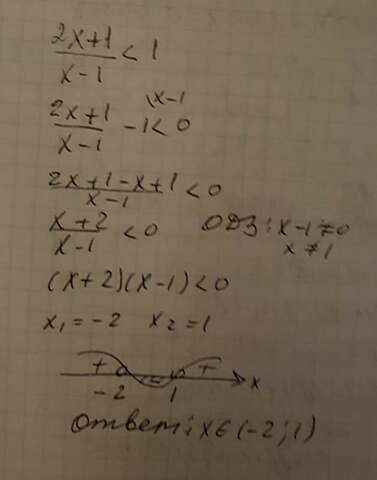 (2x+1)/(x-1) < 1
(2x+1)/(x-1) - 1\x-1 < 0
(2x+1-x+1)/(x-1) < 0
(x+2)/(x-1) < 0 ОДЗ: x-1≠0
x≠1
(x+2)(x-1)<0
x₁=-2 x₂=1
+ - + x
-2 1
Ответ: x∈(-2;1)